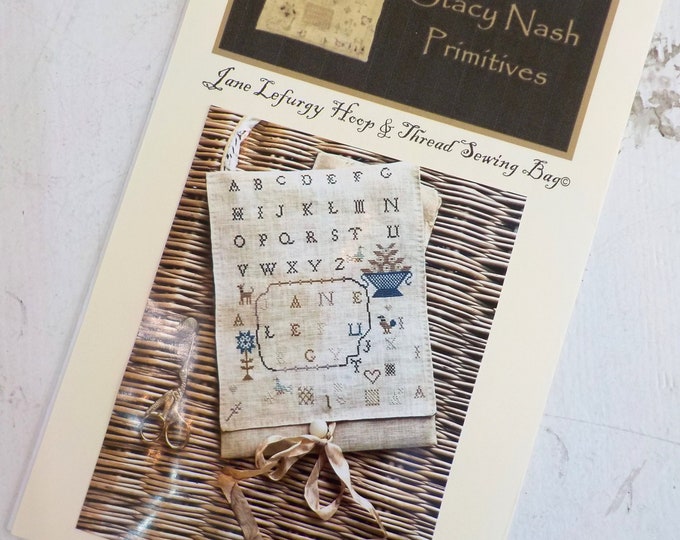 Stacy Nash
Primitives
Jane Lefurgy Hoop & Thread Sewing Bag©
A B C D E F G
H I J K L M N
O P Q R S T U
V W X Y Z
A N E
L E F U
G Y